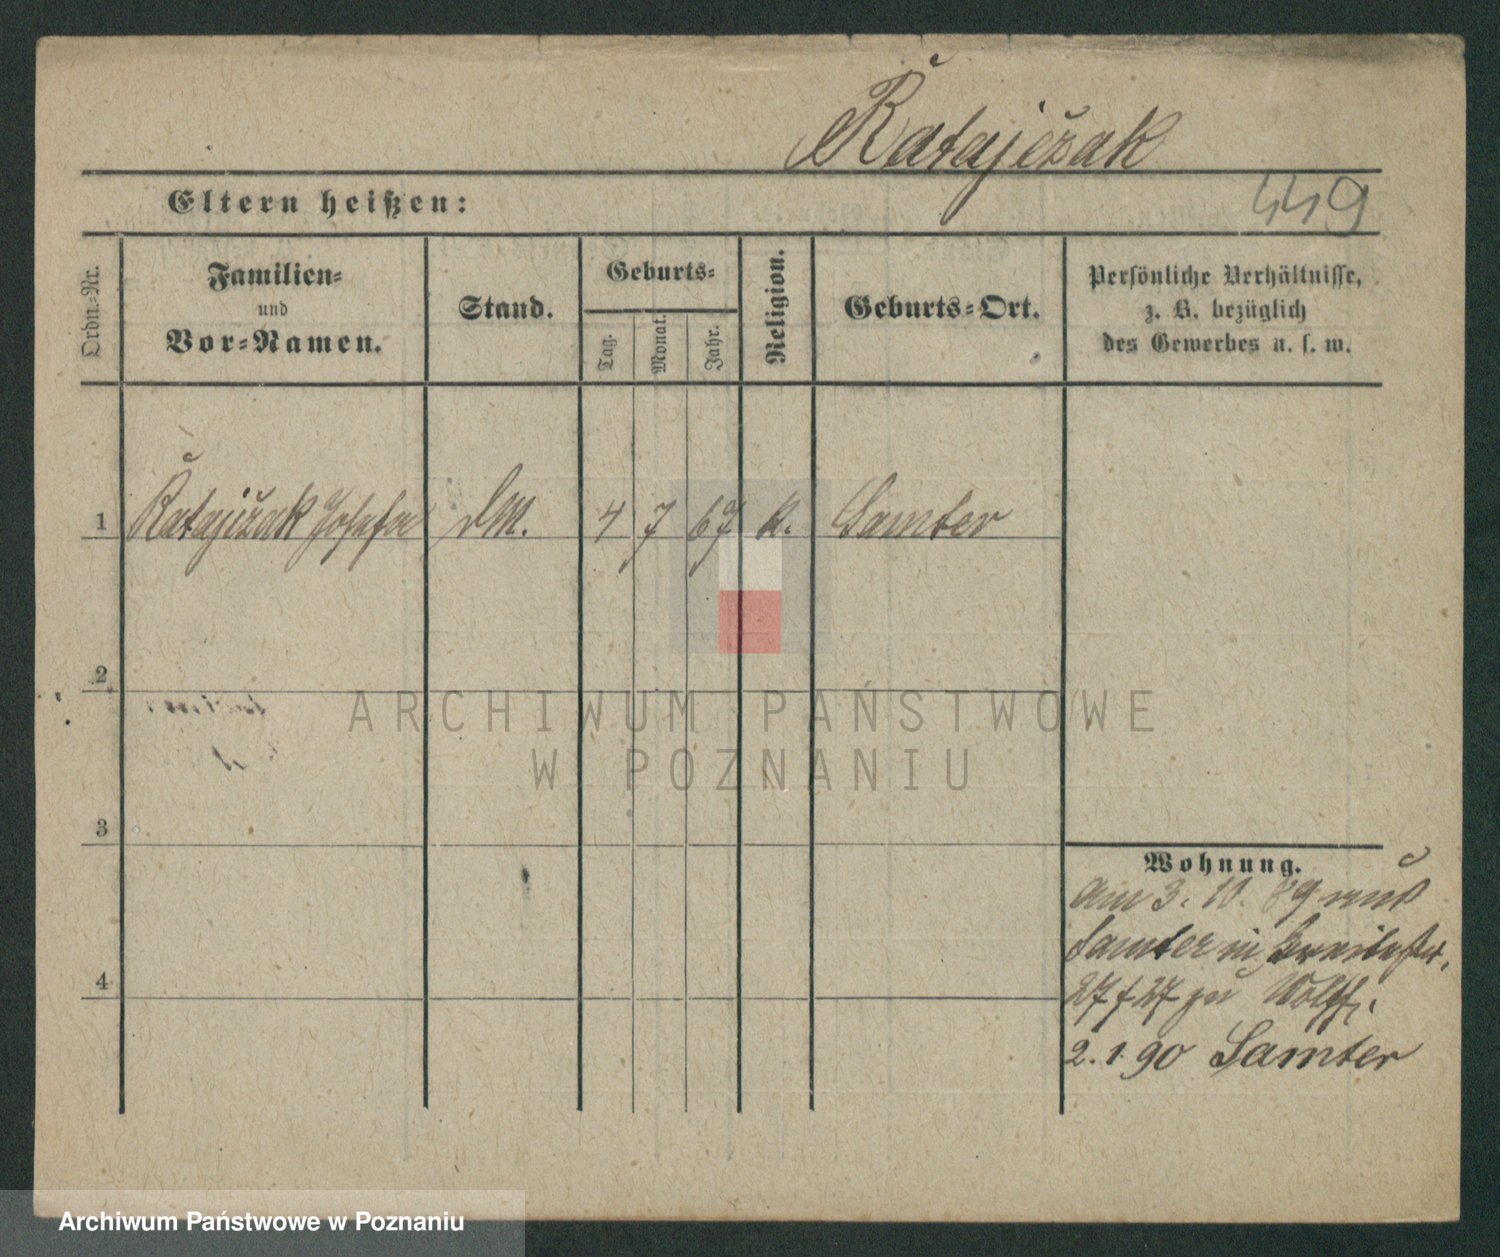 Ratajczak
Eltern heißen:
449
Ordn.-Nr.
Familien-
und
Vor-Namen.
Stand.
Geburts-
Tag.
Monat.
Jahr.
Religion.
Geburts-Ort.
Persönliche Verhältnisse,
z. B. bezüglich
des Gewerbes u. s. w.
1 Ratajczak Josefa DM. 4 7 67 k. Samter
2
3
4
Wohnung.
am 3. 10. 89 aus
Samter in Breitestr.
27 f 27 zu Wolff.
2. 1. 90 Samter
ARCHIWUM PAŃSTWOWE
W POZNANIU
Archiwum Państwowe w Poznaniu